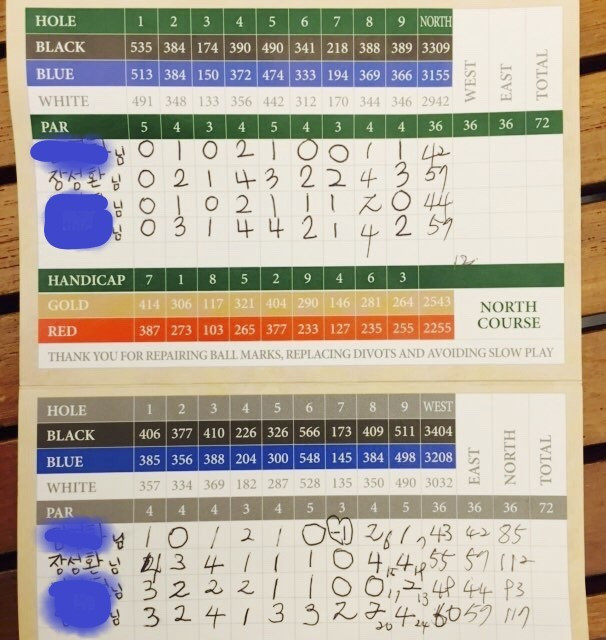 HOLE 1 2 3 4 5 6 7 8 9 NORTH WEST EAST TOTAL
BLACK 535 384 174 390 490 341 218 388 389 3309
BLUE 513 384 150 372 474 333 194 369 366 3155
WHITE 491 348 133 356 442 312 170 344 346 2942
PAR 5 4 3 4 5 4 3 4 4 36 36 36 72
님 0 1 0 2 1 0 0 1 1 42
장성환님 0 2 1 4 3 2 2 4 3 57
님 0 1 0 2 1 1 1 2 0 44
님 0 3 1 4 4 2 1 4 2 57
12
HANDICAP 7 1 8 5 2 9 4 6 3
GOLD 414 306 117 321 404 290 146 281 264 2543 NORTH
RED 387 273 103 265 377 233 127 235 255 2255 COURSE
THANK YOU FOR REPAIRING BALL MARKS, REPLACING DIVOTS AND AVOIDING SLOW PLAY
HOLE 1 2 3 4 5 6 7 8 9 WEST EAST NORTH TOTAL
BLACK 406 377 410 226 326 566 173 409 511 3404
BLUE 385 356 388 204 300 548 145 384 498 3208
WHITE 357 334 369 182 287 528 135 350 490 3032
PAR 4 4 4 3 4 5 3 4 5 36 36 36 72
님 1 0 1 2 1 0 -1 2 6 1 7 43 42 85
장성환님 4 3 4 1 1 1 0 4 4 55 57 112
님 3 2 2 2 1 1 0 0 11 2 13 49 44 93
님 3 2 4 1 3 3 2 2 20 4 24 60 57 117